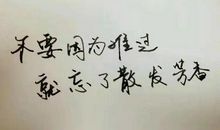 不要因为难过
就忘了散发芳香